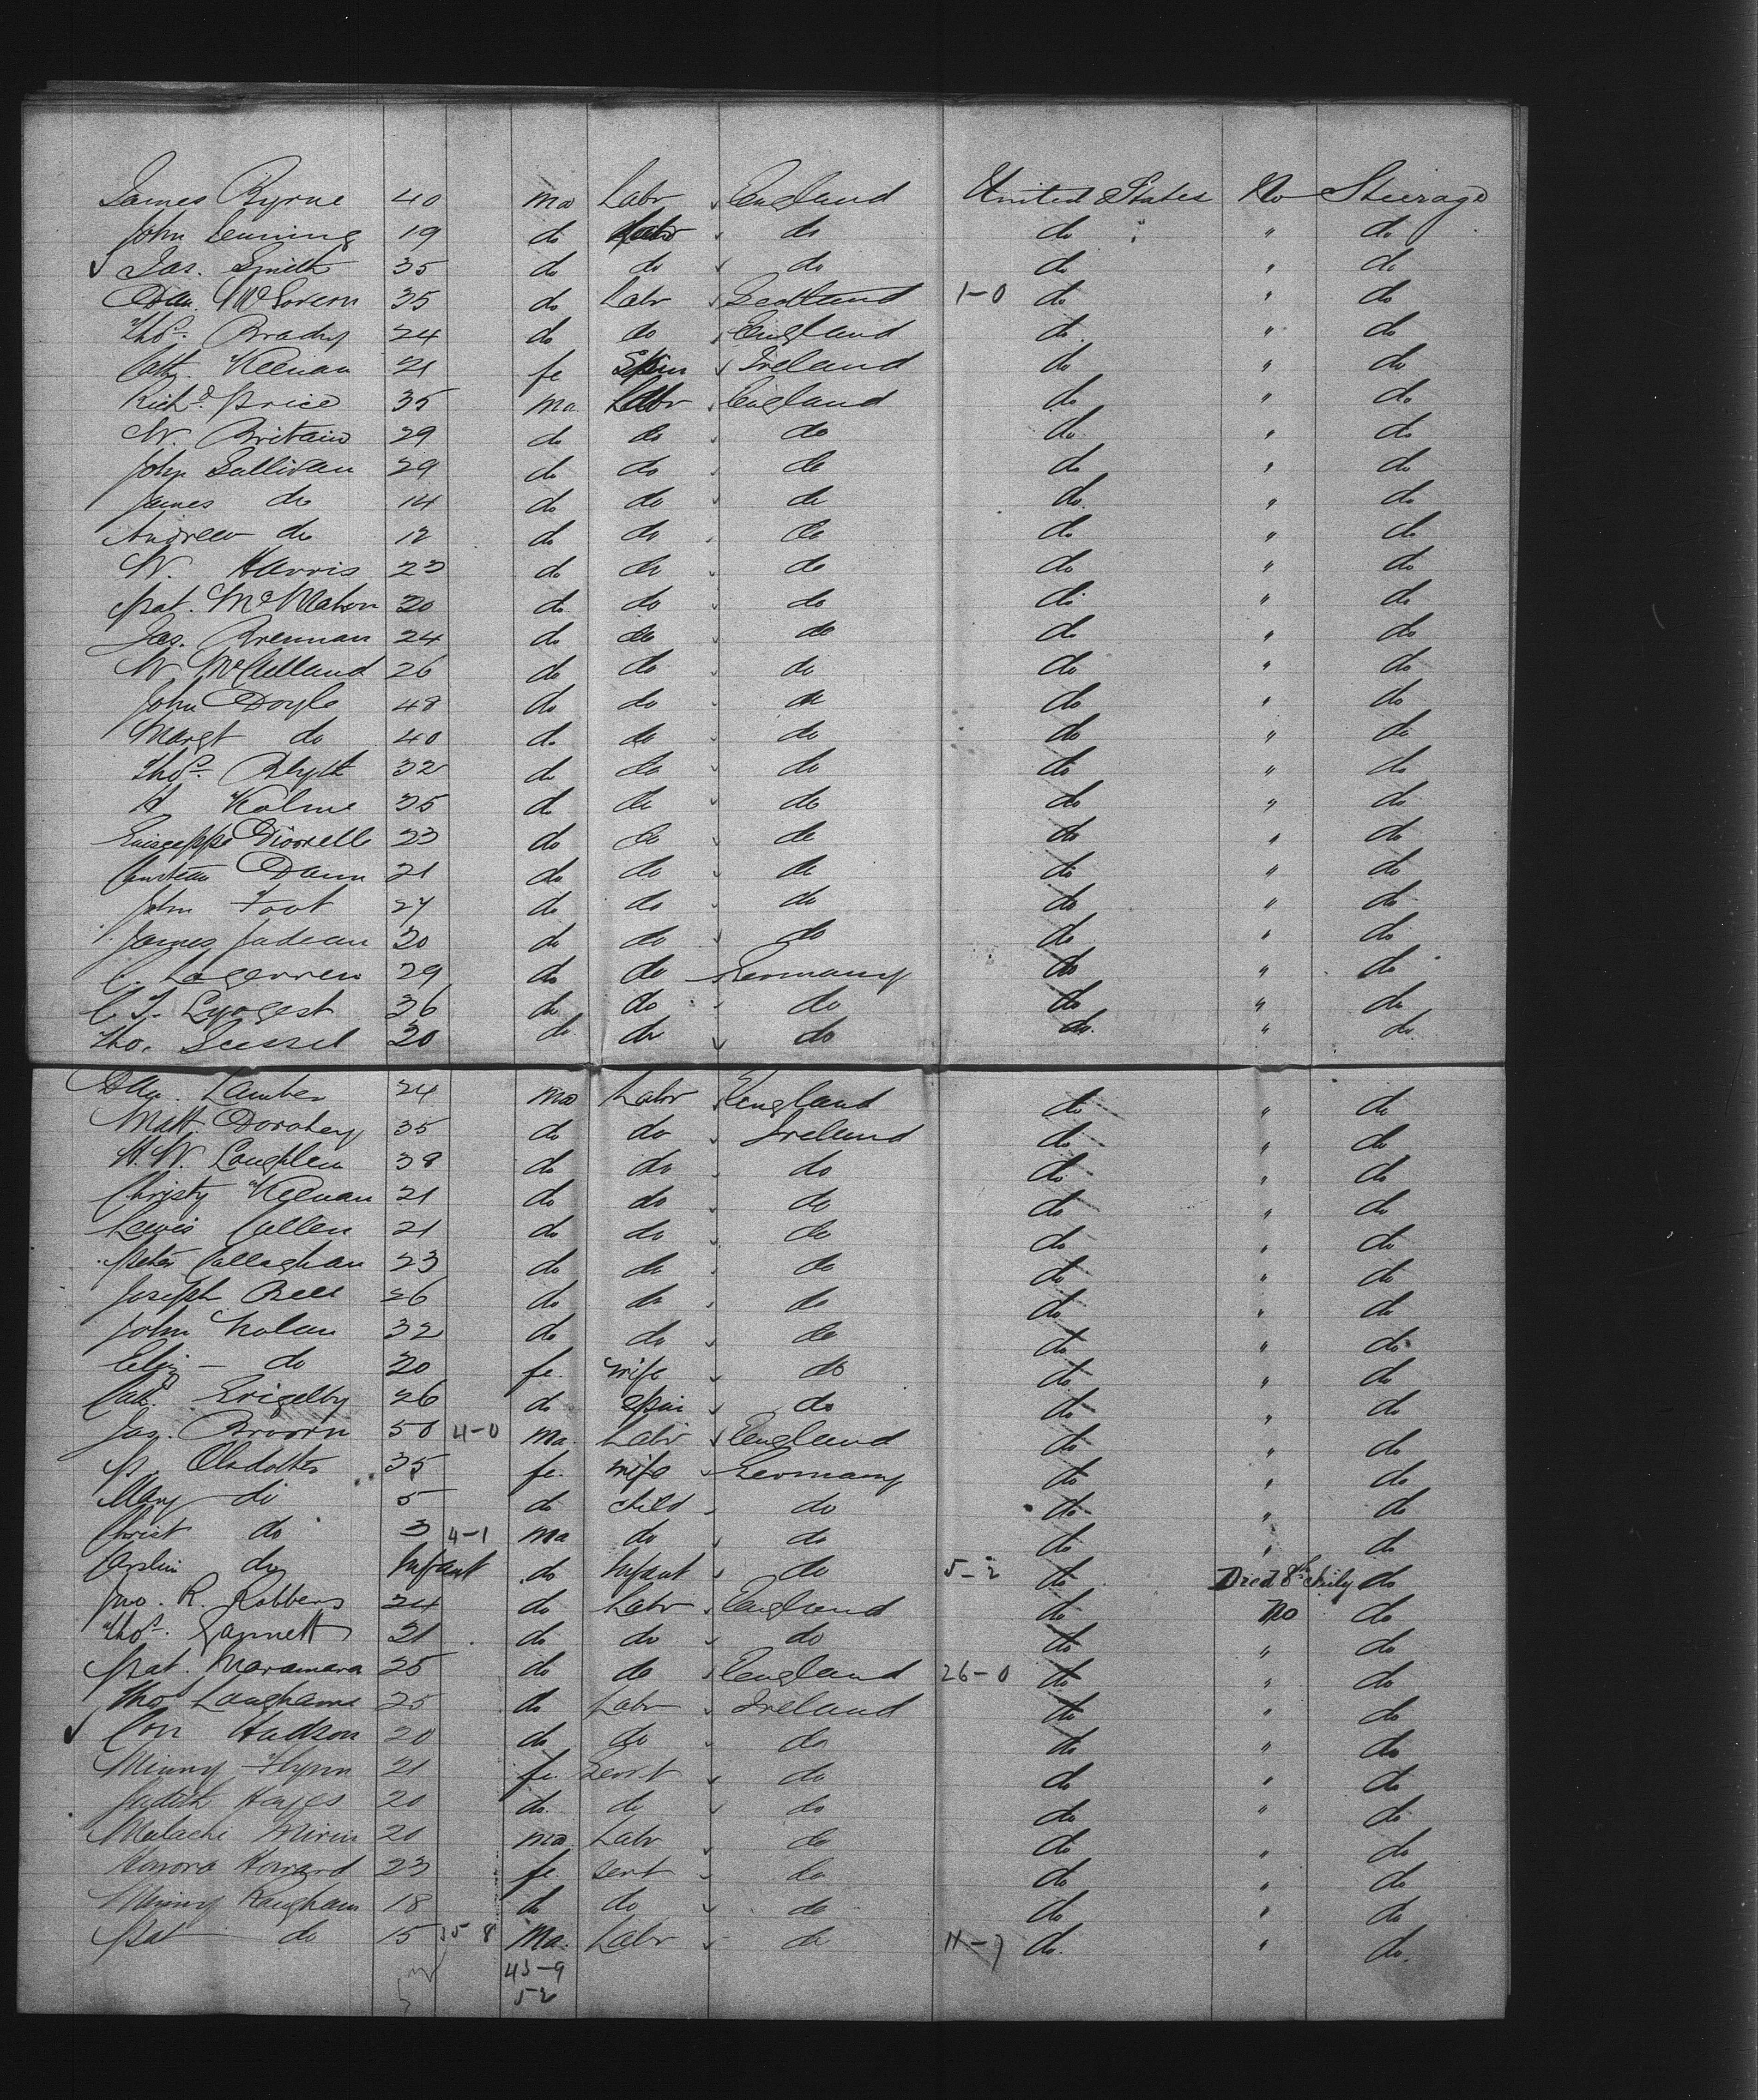 James Byrne 40 ma Labr England United States No Steerage
John Jenning 19 do Labr do do " do
Jas. Smith 35 do do do do " do
Dan. McSoreon 35 do Labr Scotland 1-0 do " do
Thos. Brady 24 do do England do " do
Cath Keenan 21 fe Spin Ireland do " do
Richd. Price 35 ma Labr England do " do
W. Britain 29 do do do do " do
John Sullivan 29 do do do do " do
James do 14 do do do do " do
Andrew do 12 do do do do " do
W. Harris 23 do do do do " do
Pat. McMahon 20 do do do do " do
Jas. Brennan 24 do do do do " do
W McClelland 26 do do do do " do
John Doyle 48 do do do do " do
Margt do 40 do do do do " do
Thos. Blyth 32 do do do do " do
H Kolme 35 do do do do " do
Guiseppe 23 do do do do " do
Dann 21 do do do do " do
John Foot 27 do do do do " do
James Judean 20 do do do do " do
C. Lagerren 29 do do Germany do " do
C. J. Lyogest 36 do do do do " do
Tho. Scissel 20 do do do do " do
Dan. Lamber 24 ma Labr England do " do
Matt. Dorohey 35 do do Ireland do " do
H. W. Coughlen 38 do do do do " do
Christy Keenan 21 do do do do " do
Lewis Cullen 21 do do do do " do
Peter Callaghan 23 do do do do " do
Joseph Bell 26 do do do do " do
John Nolan 32 do do do do " do
Eliz - do 20 fe. wife do do " do
Cath. Grigelby 26 do spin do do " do
Jas. Broorn 50 4-0 ma. Labr England do " do
P. Olsdotter 35 fe. wife Germany do " do
Mary do 5 do child do do " do
Christ do 3 4-1 ma do do do " do
do Infant do Infant do 5-2 do Died 8th July do
Jno. R. Robbers 24 do Labr England do No do
Thos. Gannett 21 do do do do " do
Pat. Maramara 25 do do England 26-0 do " do
Thos Langhame 25 do Labr Ireland do " do
Con Hudson 20 do do do do " do
Minny Flynn 21 fe. Servt do do " do
Judith Hayes 20 do. do do do " do
Malachi Mirin 20 ma Labr do do " do
Honora Howard 23 fe. servt do do " do
Minny Haugham 18 do do do do " do
Pat do 15 35 8 Ma. Labr do 11-7 do. " do.
43-9
52